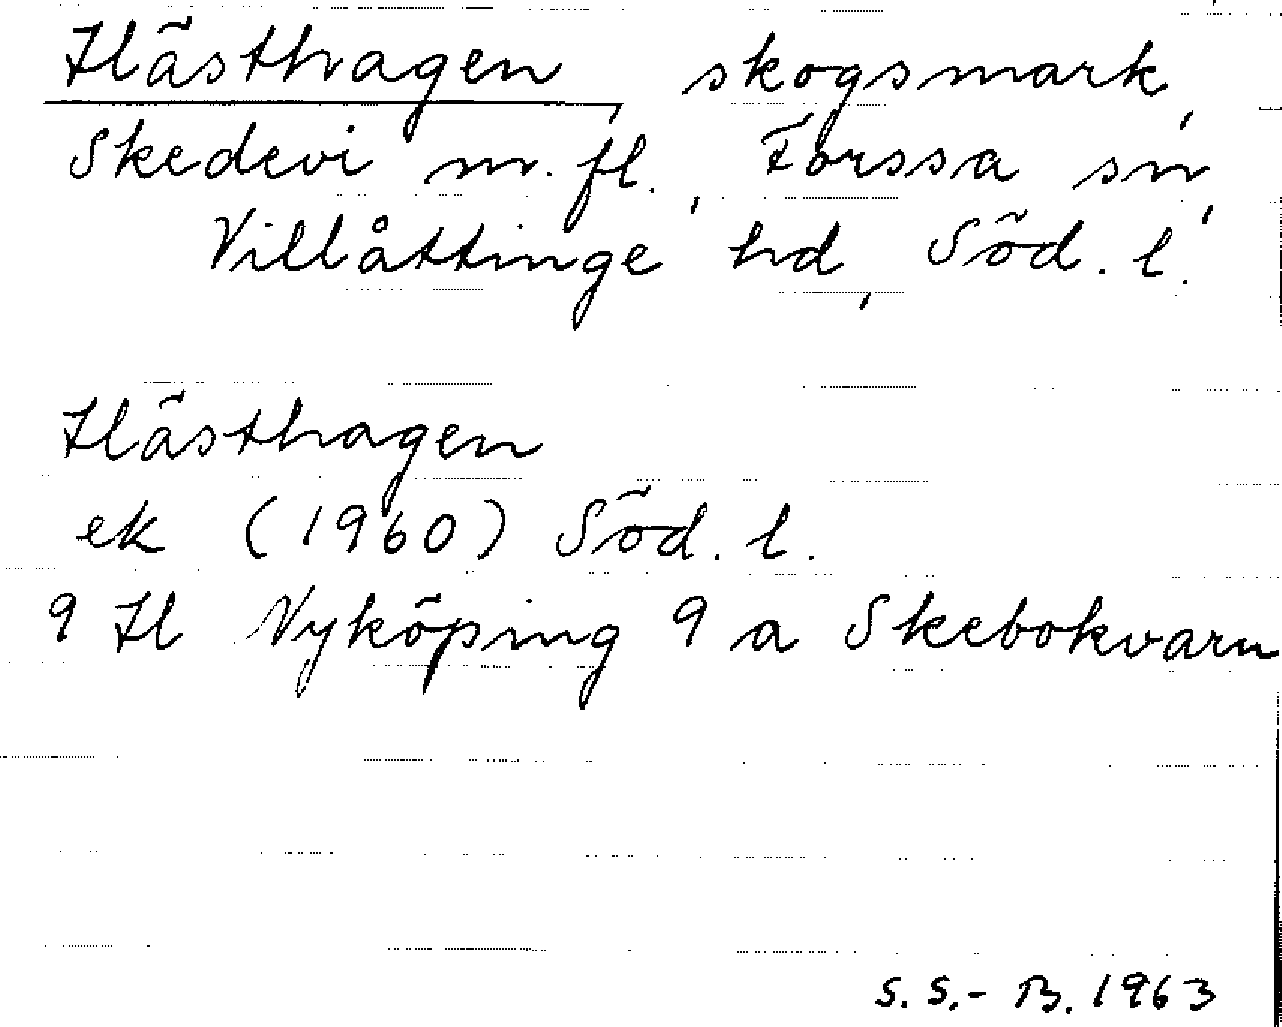 Hästhagen, skogsmark,
Skedevi m. fl., Forssa sn,
Villåttinge hd, Söd. l.
Hästhagen
ek (1960) Söd. l.
9 H Nyköping 9 a Skebokvarn
S. S.-B. 1963